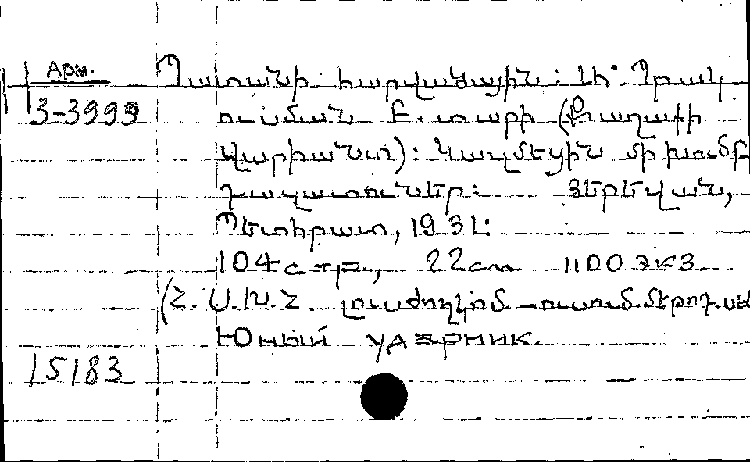 Арм.
3-3999
Պատանի հարվածային: ԼԻ՛ Պրակ
ուսման Բ. տարի (Քաղաքի
վարիանտ): Կազմեցին մի խումբ
դասատուներ: Յերեվան,
Պետհրատ, 1931:
104 стр., 22 см 1100 экз
(Հ. Ս. Խ. Հ. լուսժողկոմ – ուսումմեթոդ.
Юный ударник.
15183